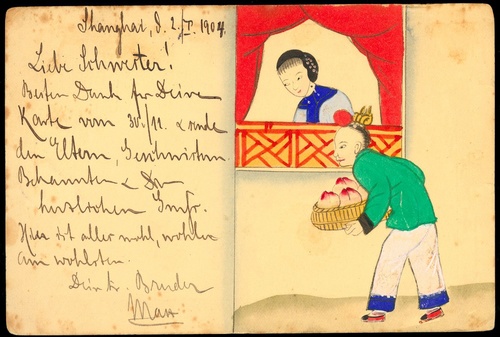 Shanghai, d. 2./I. 1904.
Liebe Schwester!
Besten Dank für Deine
Karte vom 30./11. & sende
den Eltern, Geschwistern
Bekannten & Dir
herzlichen Gruß.
Hier ist alles wohl,
am wohlsten.
Dein tr. Bruder
Max